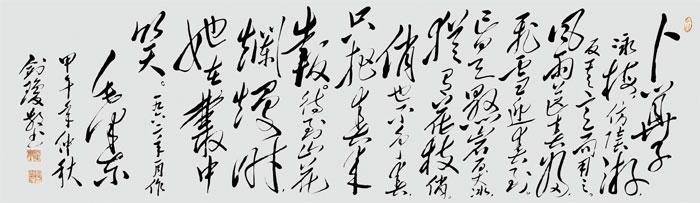 卜算子
咏梅仿陆游
反其意而用之
风雨送春归
飞雪迎春到
已是悬崖百丈冰
犹有花枝俏
俏也不争春
只把春来
报。待到山花
烂熳时
她在叢中
笑。一九六二年月作
毛泽东
甲午年仲秋